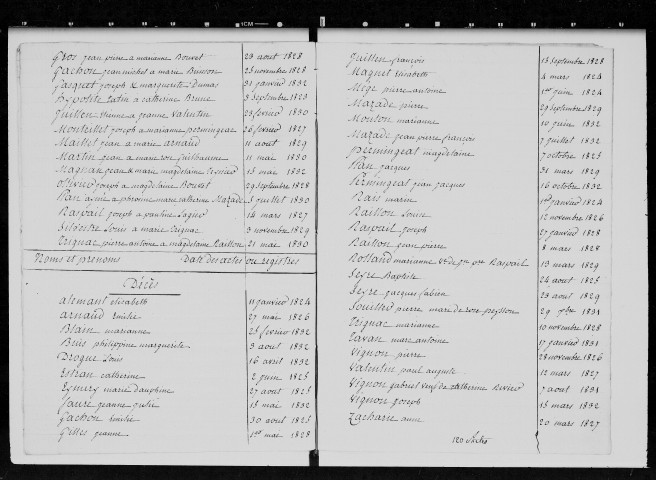 Gros jean pierre a marianne Bouvet 29 aout 1828
Gachon jean michel a marie Brusson 25 novembre 1828
Jasquet joseph & marguerite Dumas 31 janvier 1832
hypolite Latin a catherine Brune 3 septembre 1823
Guillen étienne a jeanne Valentin 25 fevrier 1830
Monteillet joseph a marianne permingeat 26 fevrier 1827
Maillet jean a marie arnaud 11 aout 1829
Martin jean a marie rose Guilhaume 11 mai 1830
Magnan jean & marie magdelaine 15 mai 1832
ollivier joseph a magdelaine Bouvet 29 septembre 1828
marie catherine Mazade 5 juillet 1830
Raspail joseph a pauline 14 mars 1827
Silvestre Louis a marie Trignac 3 novembre 1829
Trignac pierre antoine a magdelaine Raillon 21 mai 1830
Noms et prenoms Date des actes ou registres
Décès
alemant elisabeth 11 janvier 1824
arnaud emilie 27 mai 1826
Blain marianne 25 fevrier 1832
Buis philippine marguerite 3 aout 1832
Drogue Louis 16 avril 1832
Estran catherine 2 juin 1825
Eymery marie dauphine 27 aout 1825
faure jeanne julie 15 mai 1832
Gachon emilie 30 aout 1825
Gilles jeanne 1er mai 1828
Guillen françois 15 septembre 1828
Maquet Elisabeth 4 mars 1824
Mege pierre antoine 1er juin 1824
Mazade pierre 29 septembre 1829
Mouton marianne 10 juin 1832
Mazade jean pierre françois 7 juillet 1832
permingeat magdelaine 7 octobre 1825
Pan jacques 31 mars 1829
Permingeat jean jacques 16 octobre 1832
Rais marin 1er janvier 1824
Raillon Louise 12 novembre 1826
Raspail joseph 27 janvier 1828
Raillon jean pierre 8 mars 1828
Rolland marianne Raspail 13 mars 1829
Seyre Baptiste 24 aout 1825
Seyre jacques fabien 23 aout 1829
Souillier pierre marc de rose peysson 29 1831
Trignac marianne 10 novembre 1828
Tavan marc antoine 17 janvier 1831
Vignon pierre 28 novembre 1826
Valentin paul auguste 12 mars 1827
Vignon gabriel catherine 7 aout 1831
Vignon joseph 15 mars 1832
Zacharie anne 20 mars 1827
120